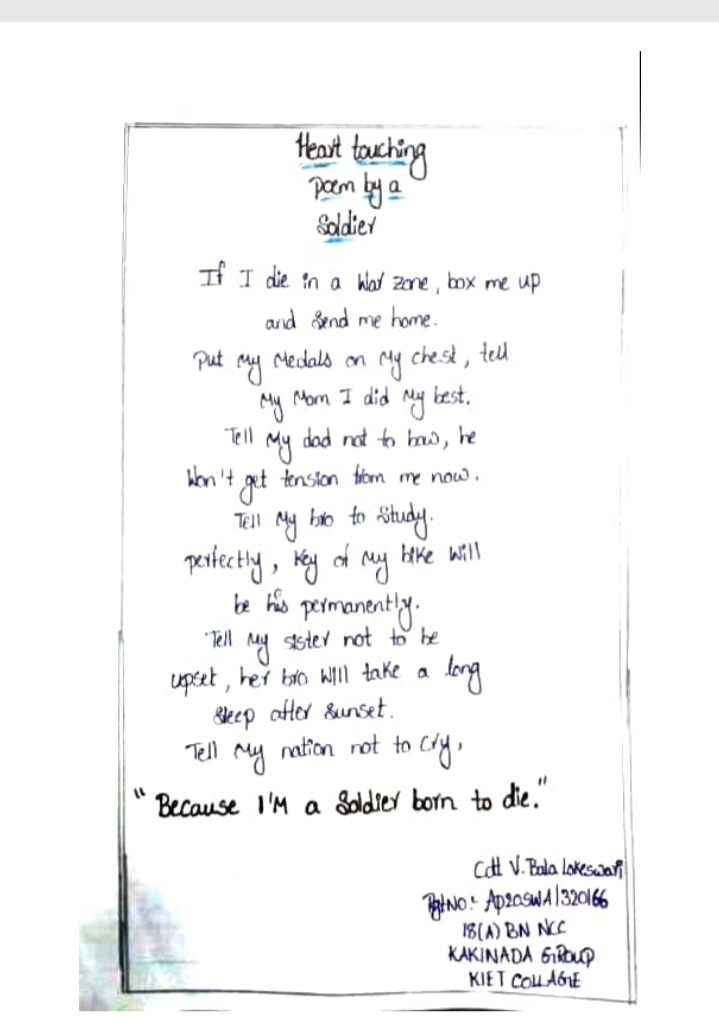 Heart touching
Poem by a
Soldier
If I die in a War zone, box me up
and Send me home.
Put My Medals on My chest, tell
My Mom I did My best.
Tell My dad not to bow, he
Won't get tension from me now.
Tell My bro to Study.
perfectly, Key of My bike will
be his permanently.
Tell My sister not to be
upset, her bro Will take a long
Sleep after Sunset.
Tell My nation not to Cry,
"Because I'M a Soldier born to die."
Cdt V. Bala Lokeswari
No: AP20SWA/320166
18(A) BN NCC
KAKINADA GROUP
KIET COLLAGE